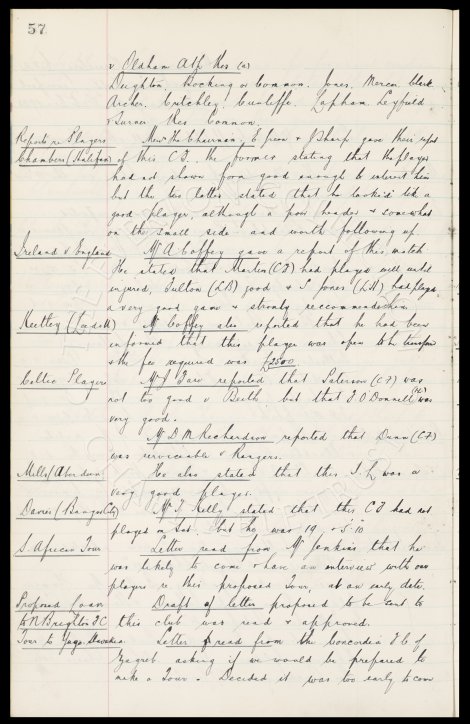 57
v Oldham Ath Res (a)
Deighton, Bocking or Common. Jones. Mercer. Clark.
Archer. Critchley. Cunliffe. Lapham. Leyfield
& Turner Res Common.
Reports re Players Messrs the Chairman, E Green & J Sharp gave their report
Chambers (Halifax) of this C.F. the former stating that the player
had not shown form good enough to interest him
but the two latter stated that he looked like a
good player, although a poor header & somewhat
on the small side and worth following up.
Ireland v England Mr A Coffey gave a report of this match.
He stated that Martin (CF) had played well until
injured, Fulton (LB) good & S Jones (LH) had played
a very good game & strongly recommended him.
Keetley (Leeds) Mr Coffey also reported that he had been
informed that this player was open to be transfer
& the fee required was £2500
Celtic Players Mr J Fare reported that Paterson (CF) was
not too good v Beith but that F O'Donnell was
very good.
Mr D M Richardson reported that Dunn (CF)
was serviceable v Rangers.
Mills (Aberdeen) He also stated that this I.L. was a
very good player.
Davies (Bangor City) Mr T Kelly stated that this CF had not
played on Sat. but he was 19 & 5' 10
S. African Tour Letter read from Mr Jenkins that he
was likely to come & have an interview with our
players re this proposed Tour, at an early date.
Proposed Loan Draft of letter proposed to be sent to
to N Brighton F.C this club was read & approved.
Tour to Yugo Slavakia. Letter read from the Concordia F.C of
Zagreb asking if we would be prepared to
make a Tour. Decided it was too early to come